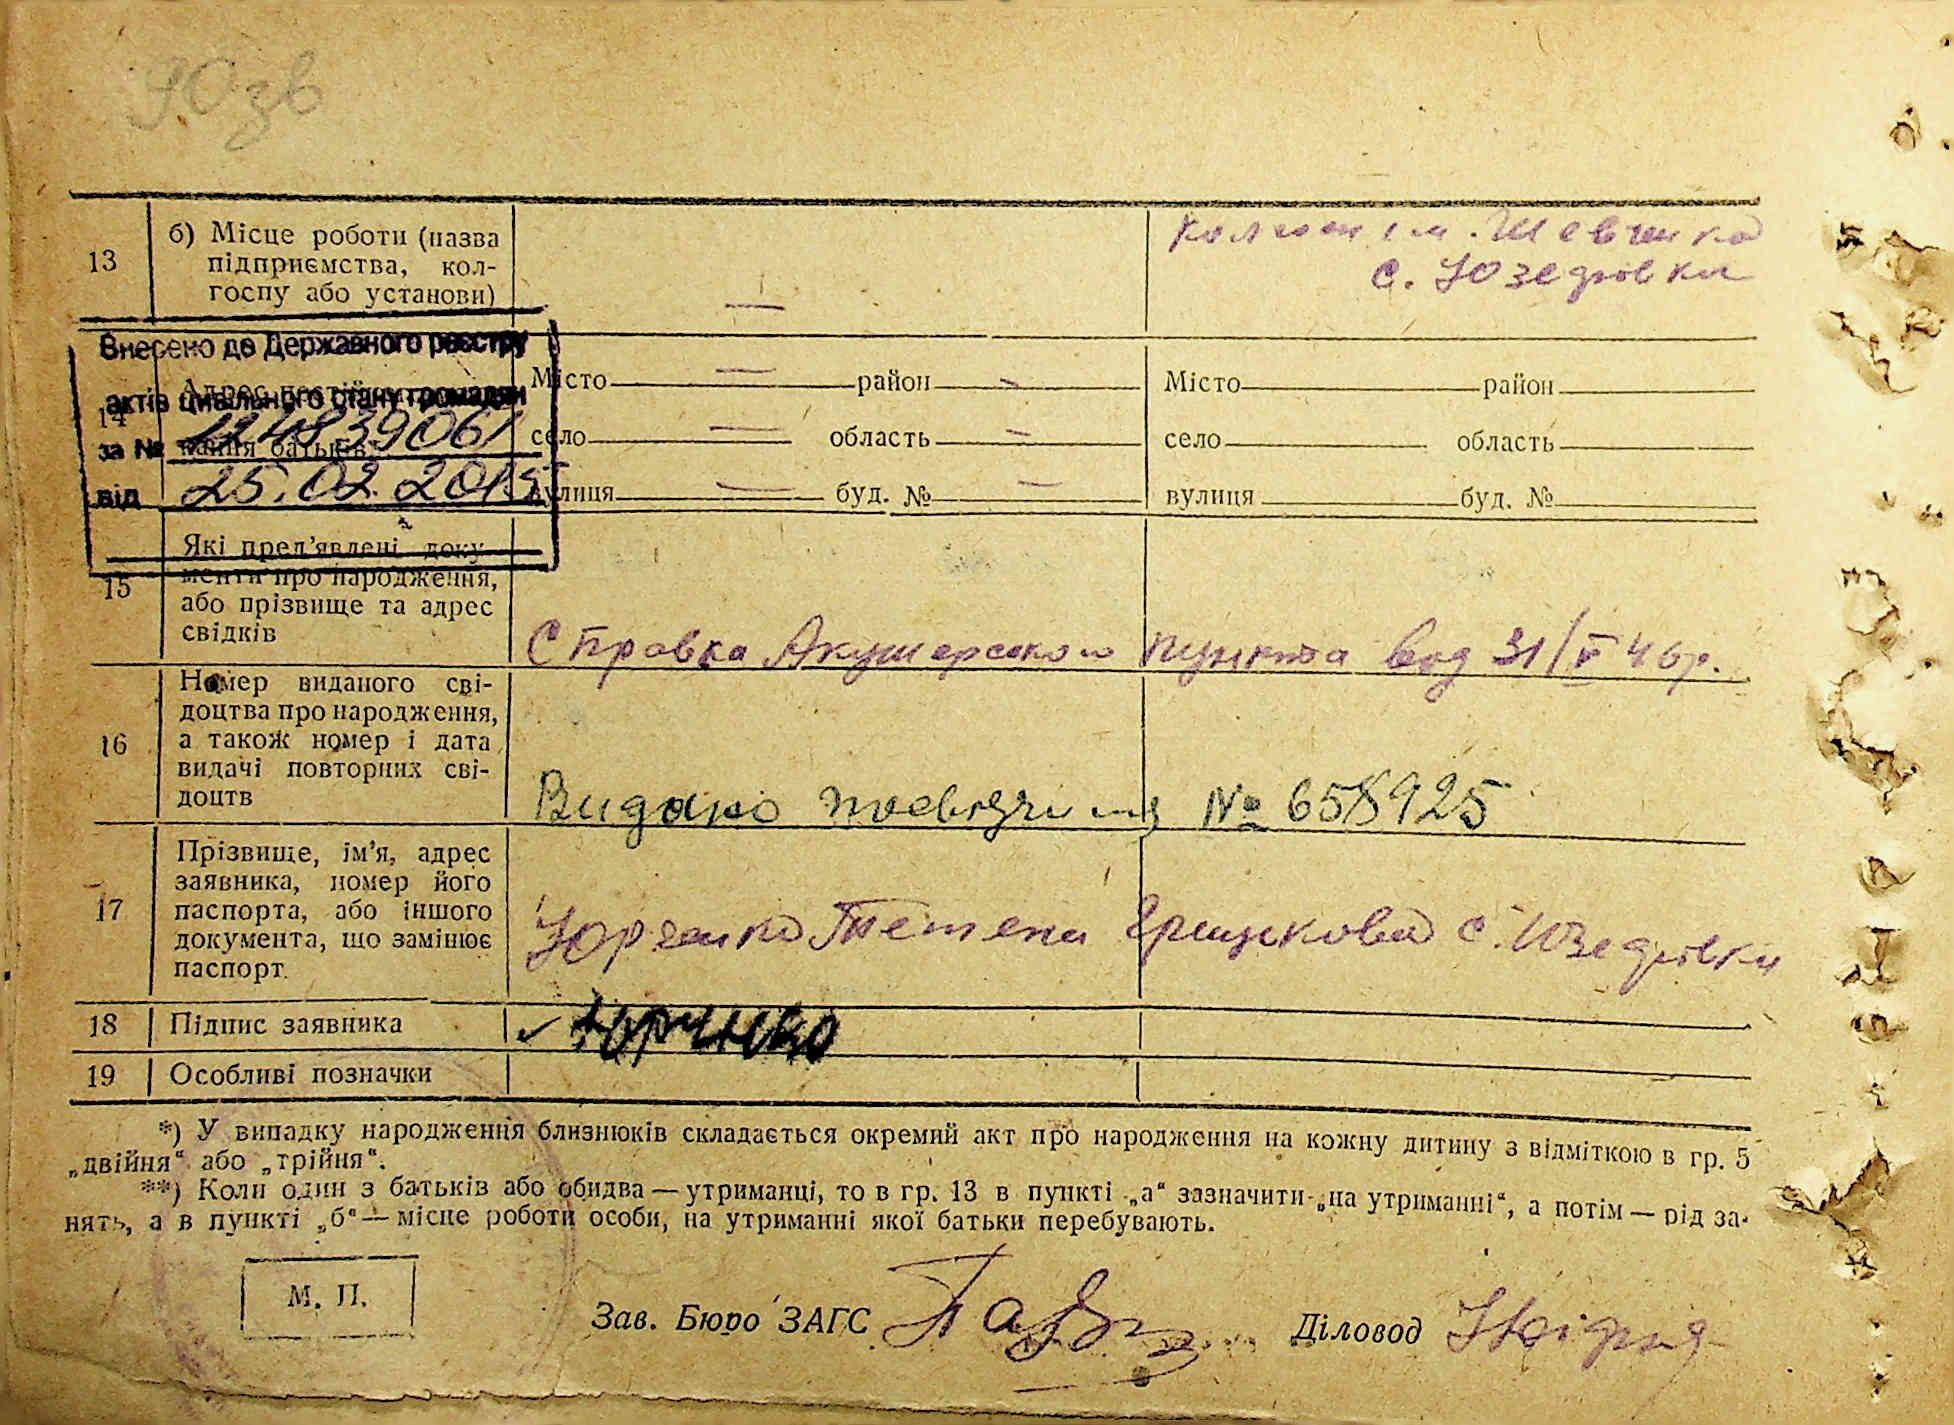 Юзв
13 б) Місце роботи (назва підприємства, кол-госпу або установи) — Колгосп ім. Шевченка
с. Юзефівка
Внесено до Державного реєстру
актів цивільного стану громадян
за № 12483906/
від 25.02.2015
14
Місто — район — Місто район
село — область — село область
вулиця — буд. № — вулиця буд. №
15 Які пред'явлені доку-
менти про народження,
або прізвище та адрес
свідків
Справка Акушерского пункта вод 31/V 46р.
16 Номер виданого сві-
доцтва про народження,
а також номер і дата
видачі повторних сві-
доцтв
Видано № 658925
17 Прізвище, ім'я, адрес
заявника, номер його
паспорта, або іншого
документа, що замінює
паспорт.
Юрченко Тетена с. Юзефівка
18 Підпис заявника Юрченко
19 Особливі позначки
*) У випадку народження близнюків складається окремий акт про народження на кожну дитину з відміткою в гр. 5
„двійня“ або „трійня“.
**) Коли один з батьків або обидва — утриманці, то в гр. 13 в пункті „а“ зазначити „на утриманні“, а потім — рід за-
нять, а в пункті „б“ — місце роботи особи, на утриманні якої батьки перебувають.
М. П.
Зав. Бюро ЗАГС Діловод